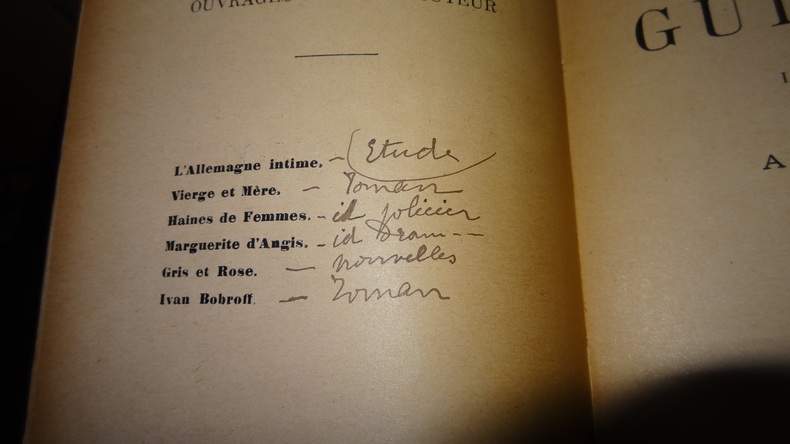 OUVRAGES AUTEUR
L'Allemagne intime. — Etude
Vierge et Mère. — Roman
Haines de Femmes. — id policier
Marguerite d'Angis. — id Dram--
Gris et Rose. — nouvelles
Ivan Bobroff. — Roman
GU
A